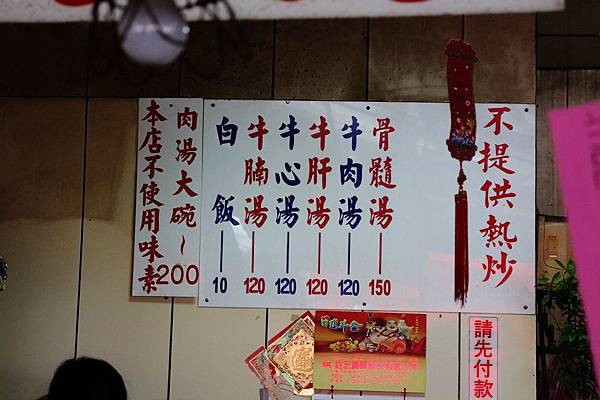 不提供熱炒
骨髓湯—150
牛肉湯—120
牛肝湯—120
牛心湯—120
牛腩湯—120
白飯10
肉湯大碗~200
本店不使用味素
請先付款